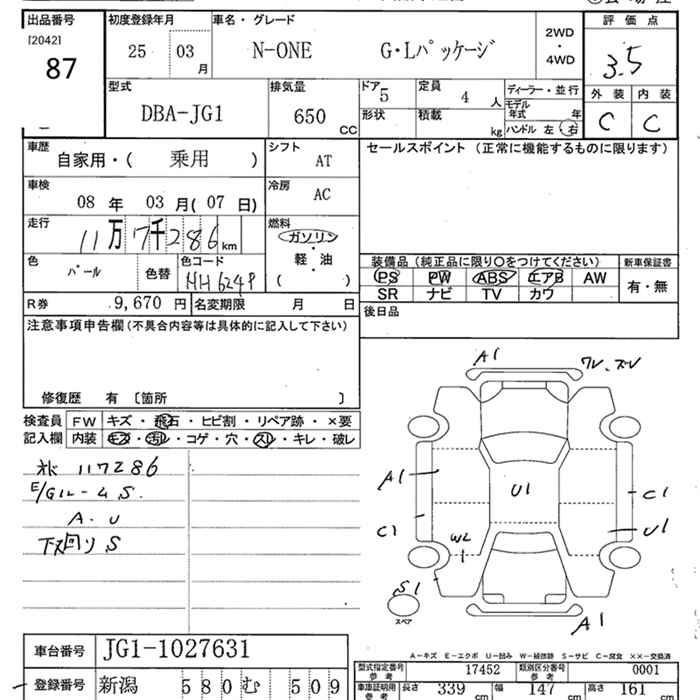 出品番号 初度登録年月 車名・グレード 評価点
[2042] 25 03 月 N-ONE G・Lパッケージ 2WD・4WD 3.5
87
型式 排気量 ドア 5 定員 4 人 ディーラー・並行 外装 内装
DBA-JG1 650 CC 形状 積載 kg モデル年式 年 C C
ハンドル 左 右
車歴 シフト セールスポイント (正常に機能するものに限ります)
自家用・( 乗用 ) AT
車検 冷房
08 年 03 月(07 日) AC
走行 燃料
11万7千286 km ガソリン・軽・油
色 色コード 装備品 (純正品に限り○をつけてください) 新車保証書
パール 色替 NH624P ( ) PS PW ABS エアB AW 有・無
SR ナビ TV カワ
R券 9,670 円 名変期限 月 日 後日品
注意事項申告欄(不具合内容等は具体的に記入して下さい)
修復歴 有 〔箇所 〕
検査員 FW キズ・飛石・ヒビ割・リペア跡・×要
記入欄 内装 キズ・汚レ・コゲ・穴・スレ・キレ・破レ
117286
E/Gルーム S.
A.U
下廻り S
A1
ワレ.ズレ
A1
U1
C1
C1
W2
U1
S1
スペア
A1
A-キズ E-エクボ U-凹み W-補修跡 S-サビ C-腐食 ××-交換済
車台番号 JG1-1027631
型式指定番号 参考 17452 類別区分番号 参考 0001
登録番号 新潟 580 む 509
車庫証明用 参考 長さ 339 cm 幅 147 cm 高さ 161 cm